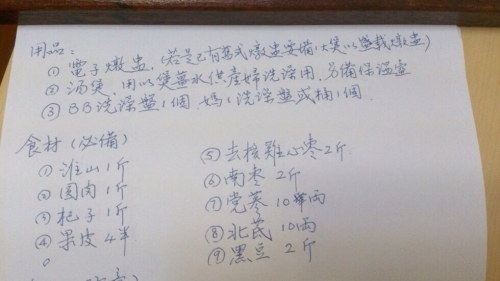 用品：
① 電子燉盅,(若是已有舊式燉盅要備1大煲以盤載燉盅)
② 湯煲,用以煲薑水供產婦洗澡用,另備保溫壺
③ BB洗澡盤1個,媽媽洗澡盤或桶1個.
食材(必備)
① 淮山1斤
② 圆肉1斤
③ 杞子1斤
④ 果皮4半
⑤ 去核雞心枣2斤
⑥ 南枣 2斤
⑦ 党蔘 10両
⑧ 北芪 10両
⑨ 黑豆 2斤